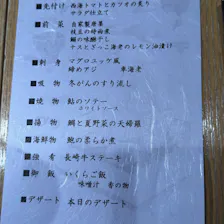 ■先付け 西海トマトとカツオの炙り
サラダ仕立て
■前菜 自家製唐墨
枝豆の
鰯の味醂干し
ナスとざっこ海老のレモン油漬け
■刺身 マグロニッケ風
締めアジ 車海老
■吸物 冬がんのすり流し
■焼物 鮎のソテー
ホワイトソース
■揚物 鯛と夏野菜の天婦羅
■海鮮物 鮑の柔らか煮
■強肴 長崎牛ステーキ
■御飯 いくらご飯
味噌汁 香の物
■デザート 本日のデザート